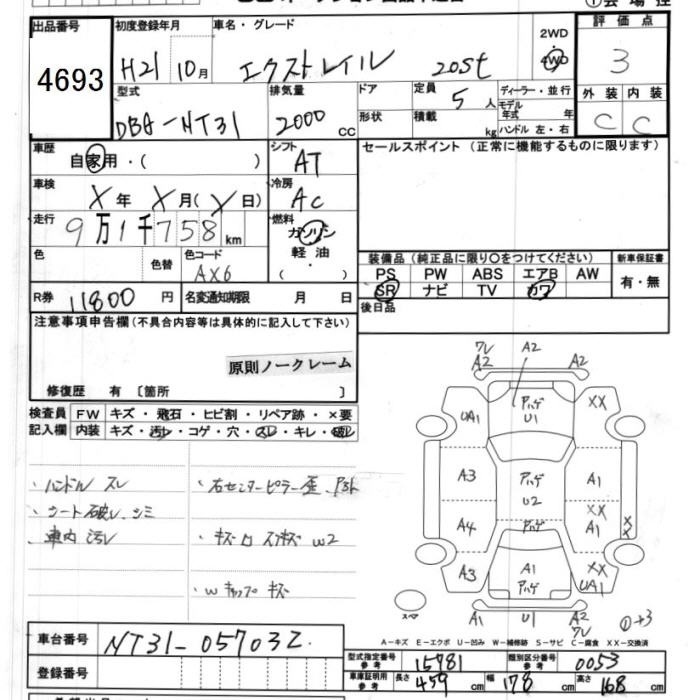 ①会場控
出品番号
4693
初度登録年月
H21 10月
車名・グレード
エクストレイル 20st
2WD
4WD
評価点
3
外装 内装
C C
型式
DBA-NT31
排気量
2000 cc
ドア
形状
定員 5人
積載 kg
ディーラー・並行
モデル年式 年
ハンドル 左・右
車歴
自家用・( )
シフト
AT
セールスポイント (正常に機能するものに限ります)
車検
X年 X月(X日)
冷房
AC
走行
9万1千758km
燃料
ガソリン
軽油
( )
色
色替
色コード
AX6
装備品 (純正品に限り○をつけてください)
新車保証書
PS PW ABS エアB AW
有・無
SR ナビ TV カワ
R券 11800円
名変通知期限 月 日
後日品
注意事項申告欄 (不具合内容等は具体的に記入して下さい)
原則ノークレーム
修復歴 有 〔箇所 〕
検査員記入欄
FW キズ・飛石・ヒビ割・リペア跡・×要
内装 キズ・汚レ・コゲ・穴・スレ・キレ・破レ
・ハンドル スレ
・シート破レ、シミ
・車内 汚レ
・右センターピラー歪
W2
キズ
ワレ A2 A2 A2
UA1 アハゲ U1 XX
A3 アハゲ U2 A1
A4 アハゲ XX A1 X
A3 A1 アハゲ XX UA1
スペア
A1 U1 A2 ワレ
①+3
A-キズ E-エクボ U-凹み W-補修跡 S-サビ C-腐食 XX-交換済
車台番号
NT31-057032
登録番号
型式指定番号 参考 15781
類別区分番号 参考 0053
車庫証明用 参考 長さ 459cm 幅 178cm 高さ 168cm